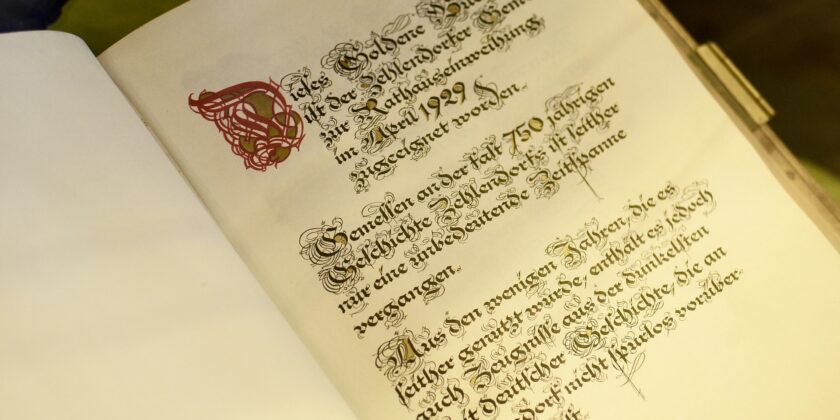 Dieses Goldene Buch
ist der Zehlendorfer Gem
zur Rathauseinweihung
im April 1929
zugeeignet worden.
Gemessen an der fast 750 jährigen
Geschichte Zehlendorfs ist seither
nur eine unbedeutende Zeitspanne
vergangen.
Aus den wenigen Jahren, die es
seither genutzt wurde, enthält es jedoch
auch Zeugnisse aus der dunkelsten
Zeit deutscher Geschichte, die an
dorf nicht spurlos vorüber-